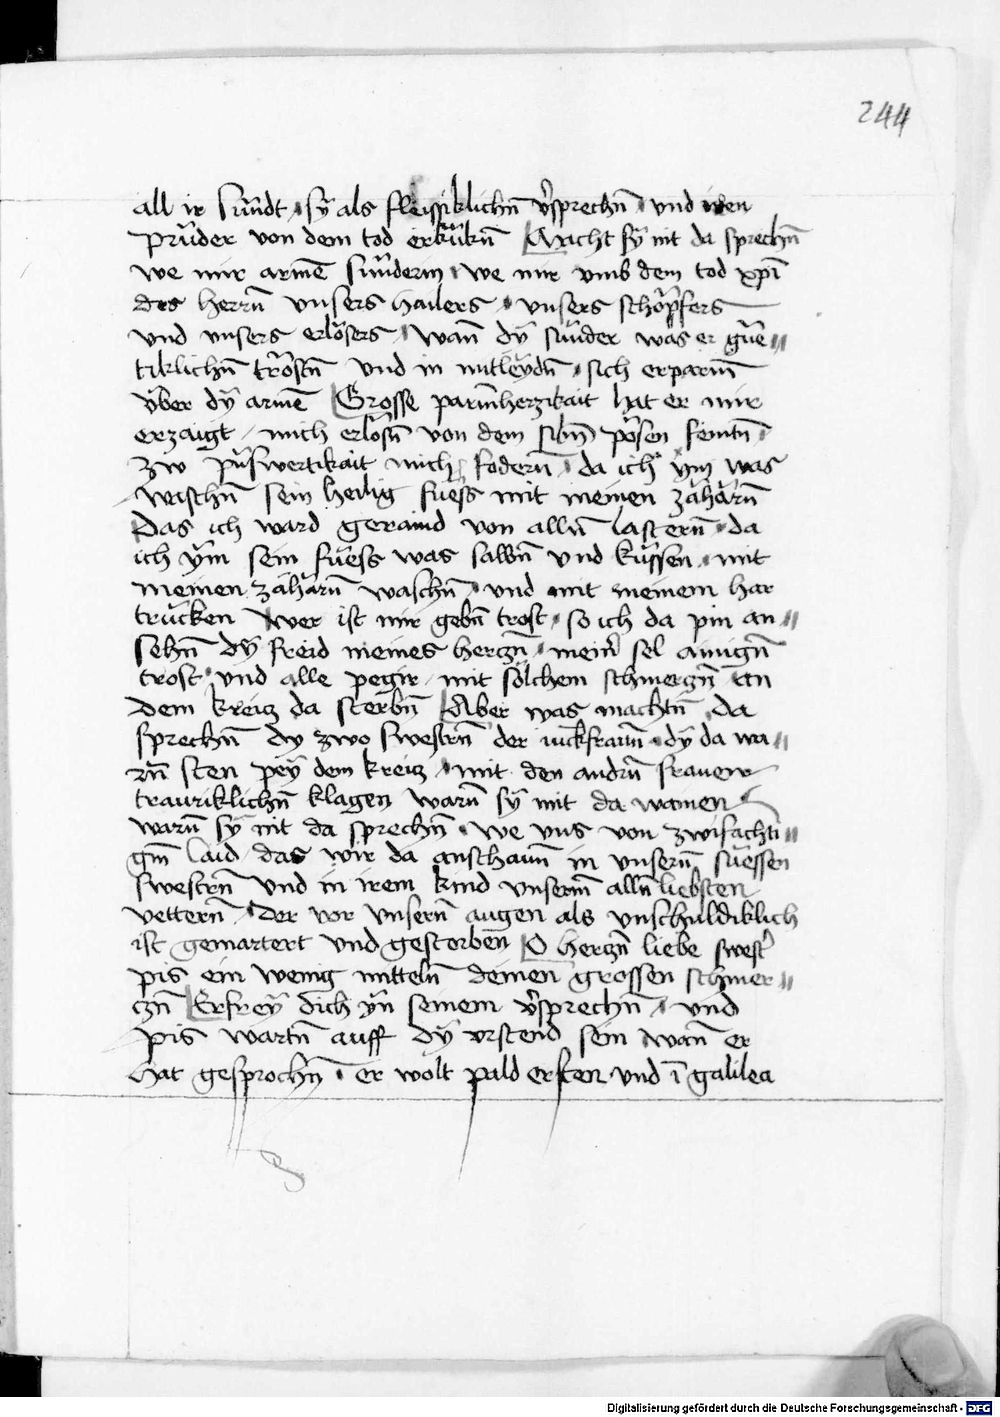 244
all ir sunndt · sy als fleissiklichn̄ v̉sprechn̄ · vnd iren
průder von dem tod erkückn̄ Macht sy nit da sprechn̄
we mir armē sunderin · we mir vmb dem tod xp̄i
des herrn̄ vnsers hailers · vnsers schöpfers
vnd vnsers erlösers · wan̄ dÿ sunder was er gůe //
tiklichn̄ tröstn̄ vnd in mitleydn̄ · sich erparm̄
über dÿ armē Grosse parmherzikait hat er mir
erzaigt · mich erlöstn̄ von dem sibn̄ pösen feintn̄ ·
zw půswertikait mich fodern̄ · da ich ym was
waschn̄ sein heilig fuess mit meinen zäharn̄
Das ich ward geraind von alln̄ lastern̄ · da
ich ÿm sein füess was salbn̄ vnd küssen · mit
meinen zäharn̄ waschn̄ · vnd mit meinem har
trücken Wer ist mir gebn̄ trost · so ich da pin an //
sehn̄ dÿ freid meines herczn̄ · mein̉ sel ainign̄
trost · vnd alle pegir · mit sölchem schmerczn̄ an
dem kreicz da sterbn̄ Aber was machtn̄ da
sprechn̄ dy zwo swestrn̄ der iuckfrawn̄ · dÿ da wa //
rn̄ sten peÿ dem kreicz · mit den andrn̄ frauen
trauriklichn̄ klagen warn̄ sÿ mit da wainen
warn̄ sÿ nit da sprechn̄ · we vns von zwifachti //
gm̄ laid · das wir da anschawn̄ in vnsern̄ süessen
swestrn̄ vnd in irem kind vnserm̄ alln̄ liebsten
vettern̄ · der vor vnsern̄ augen als vnschuldiklich
ist gemartert vnd gestorben O herczn̄ liebe swest̉
pis ein wenig mitteln̄ deinen grossen schmer //
czn̄ Erfreÿ dich ÿn seinem v̉sprechn̄ · vnd
pis wartn̄ auff dÿ vrstend sein wan̄ er
hat gesprochn̄ · er wolt pald ersten vnd ī galilea
Digitalisierung gefördert durch die Deutsche Forschungsgemeinschaft - DFG